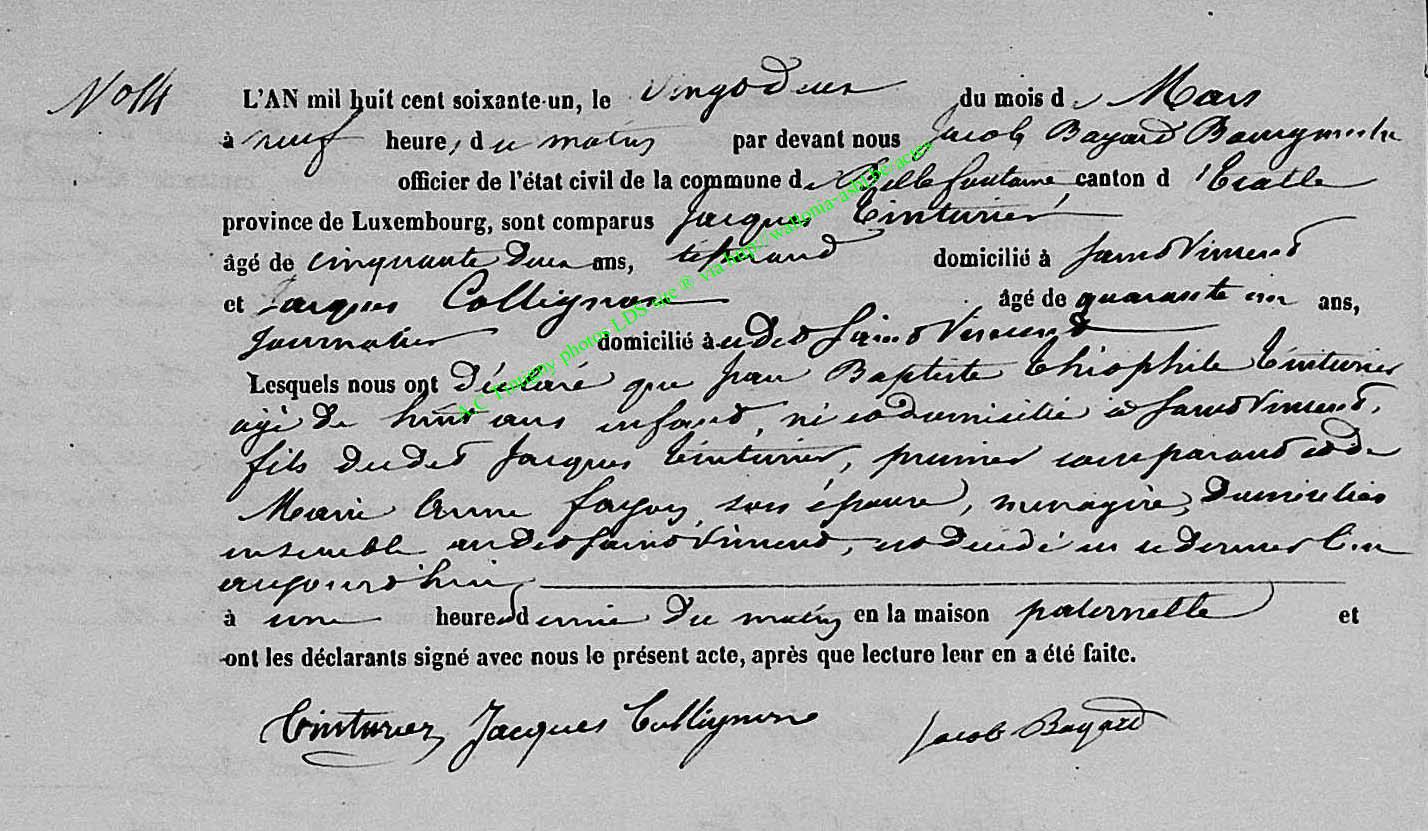 N° 14
L'AN mil huit cent soixante-un, le vingt deux du mois de Mars
à neuf heures du matin par devant nous Jacob Bayard Bourgmestre
officier de l'état civil de la commune de Bellefontaine canton d'Etalle
province de Luxembourg, sont comparus Jacques Tinturier
âgé de cinquante deux ans, tisserand domicilié à Saint Vincent
et Jacques Collignon âgé de quarante un ans,
Journalier domicilié à udit Saint Vincent
Lesquels nous ont déclaré que Jean Baptiste Théophile Tinturier
âgé de huit ans enfant, né et domicilié à Saint Vincent,
fils dudit Jacques Tinturier, premier comparant et de
Marie Anne son épouse, ménagère, domiciliés
ensemble audit Saint Vincent, est décédé en ce dernier lieu
aujourd'hui
à une heure demie du matin en la maison paternelle et
ont les déclarants signé avec nous le présent acte, après que lecture leur en a été faite.
Tinturier Jacques Collignon Jacob Bayard
A.C Tintigny photos LDS site ® via http://wallonia-asbl.be/actes